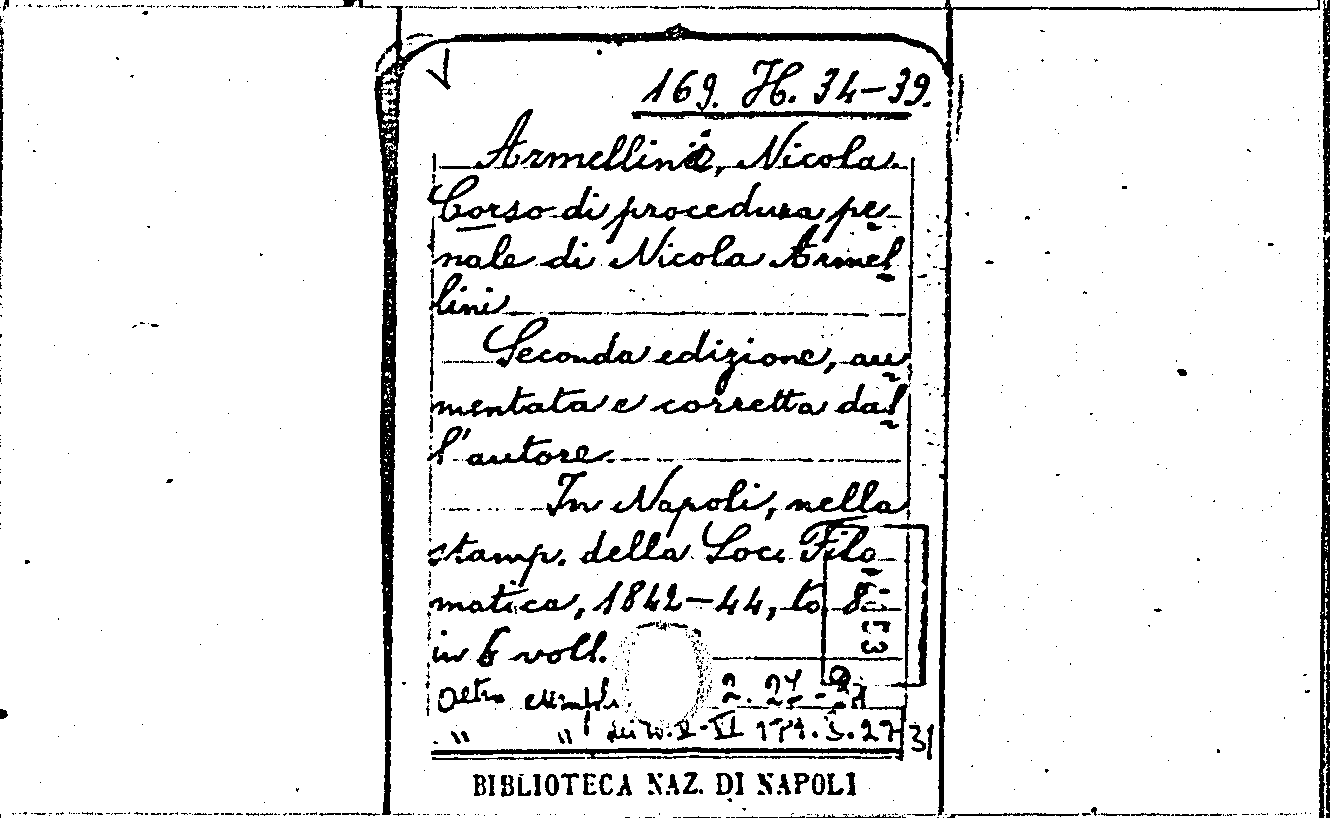 169. H. 34-39.
Armellini, Nicola.
Corso di procedura pe-
nale di Nicola Armel-
lini
Seconda edizione, au-
mentata e corretta dal-
l'autore.
In Napoli, nella
stamp. della Soc. Filo-
matica, 1842-44, to. 8
in 6 voll.
Altro
" "
BIBLIOTECA NAZ. DI NAPOLI